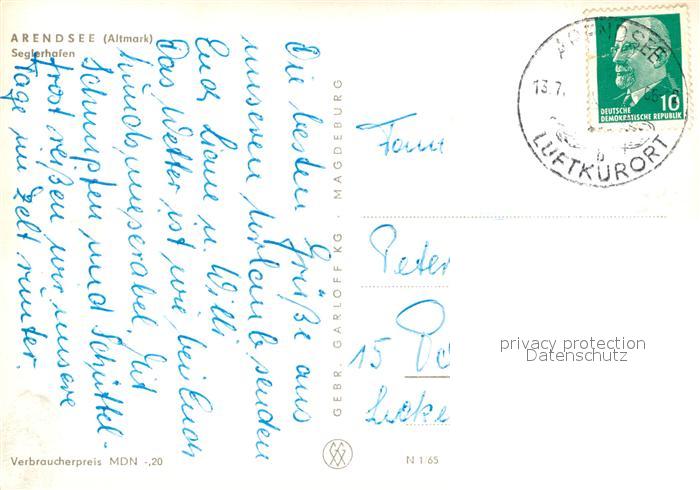 ARENDSEE (Altmark)
Seglerhafen
Die besten Grüße aus
unserem Urlaub senden
Euch Liane u. Willi
Das Wetter ist wie bei Euch
hundsmiserabel. Mit
Schnupfen und Schüttel-
frost reißen wir unsere
Tage im Zelt runter.
Verbraucherpreis MDN -,20
GEBR. GARLOFF KG · MAGDEBURG
N 1/65
ARENDSEE
13.7.
LUFTKURORT
b
10
DEUTSCHE
DEMOKRATISCHE REPUBLIK
Fam
Peter
15
privacy protection
Datenschutz